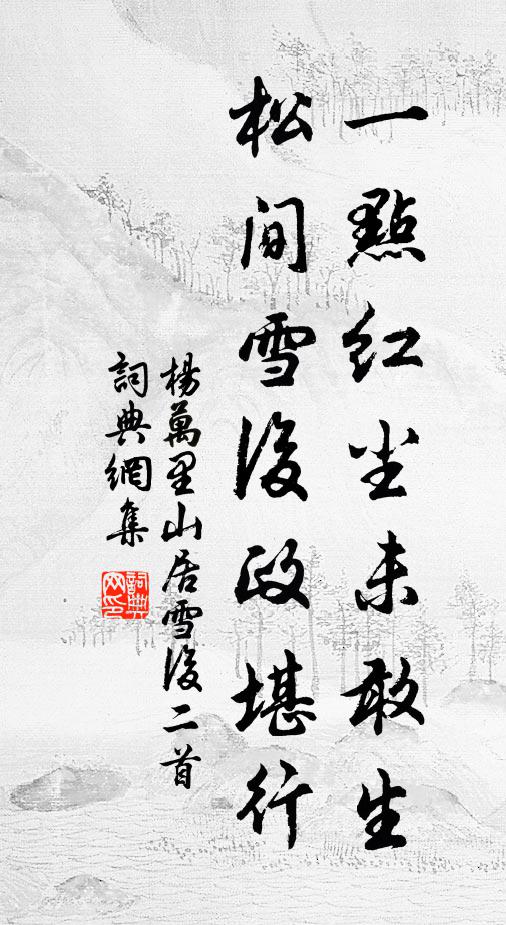 一點紅尘未敢生
松间雪後政堪行
楊萬里山居雪後二首
詞典網集
詞典网印